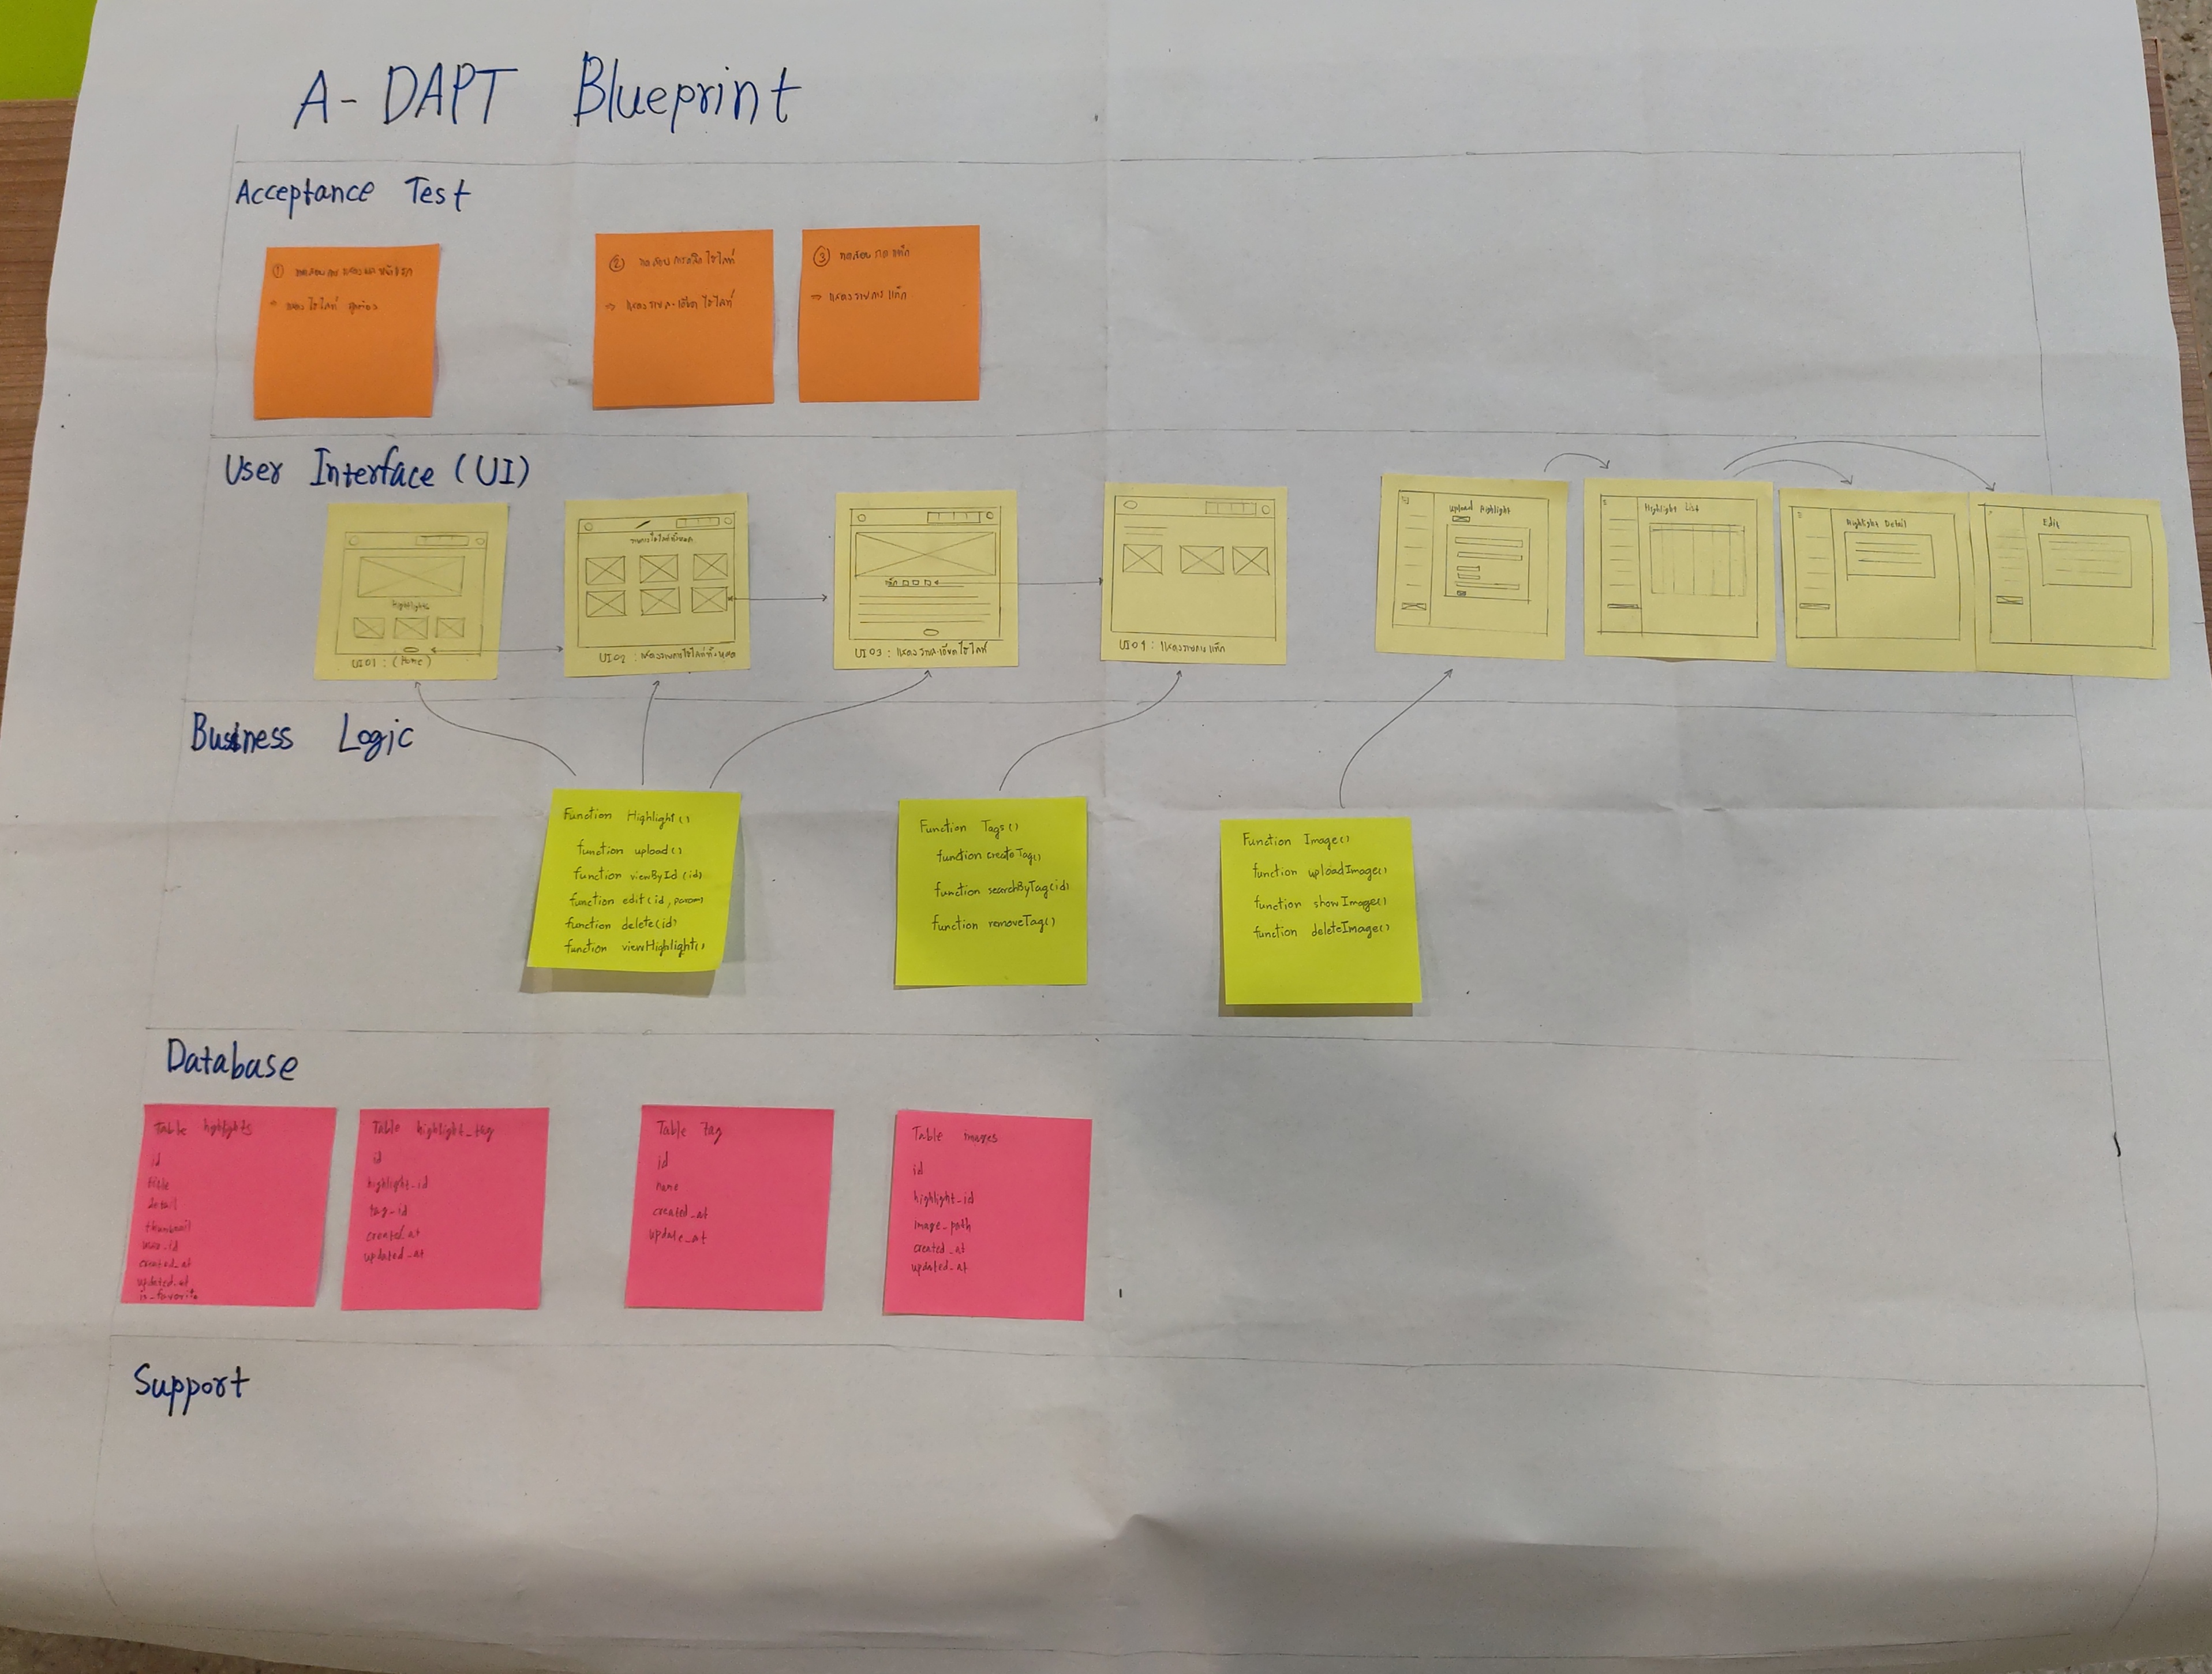 A-DAPT Blueprint
Acceptance Test
① ทดสอบการแสดงผลหน้าแรก
⇒ แสดงไฮไลท์ ถูกต้อง
② ทดสอบการคลิกไฮไลท์
⇒ แสดงรายละเอียดไฮไลท์
③ ทดสอบกดแท็ก
⇒ แสดงรายการแท็ก
User Interface (UI)
Highlights
UI01 : (Home)
รายการไฮไลท์ทั้งหมด
UI02 : แสดงรายการไฮไลท์ทั้งหมด
แท็ก
UI03 : แสดงรายละเอียดไฮไลท์
UI04 : แสดงรายการแท็ก
Upload Highlight
Highlight List
Highlight Detail
Edit
Business Logic
Function Highlight()
function upload()
function viewById(id)
function edit(id, param)
function delete(id)
function viewHighlight()
Function Tags()
function createTag()
function searchByTag(id)
function removeTag()
Function Image()
function uploadImage()
function showImage()
function deleteImage()
Database
Table highlights
id
title
detail
thumbnail
user_id
created_at
updated_at
is_favorite
Table highlight_tag
id
highlight_id
tag_id
created_at
updated_at
Table tag
id
name
created_at
update_at
Table images
id
highlight_id
image_path
created_at
updated_at
Support